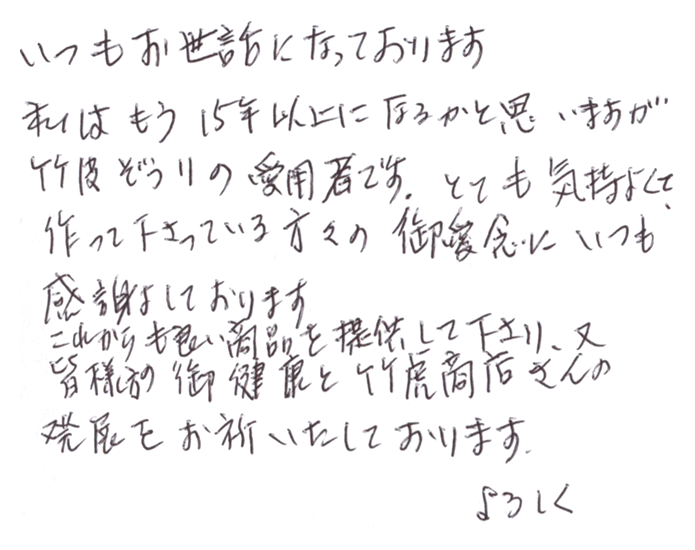 いつもお世話になっております
私はもう15年以上になるかと思いますが
竹皮ぞうりの愛用者です。とても気持よくて、
作って下さっている方々の御愛念にいつも
感謝しております
これからも良い商品を提供して下さり、又
皆様方の御健康と竹虎商店さんの
発展をお祈いたしております。
よろしく